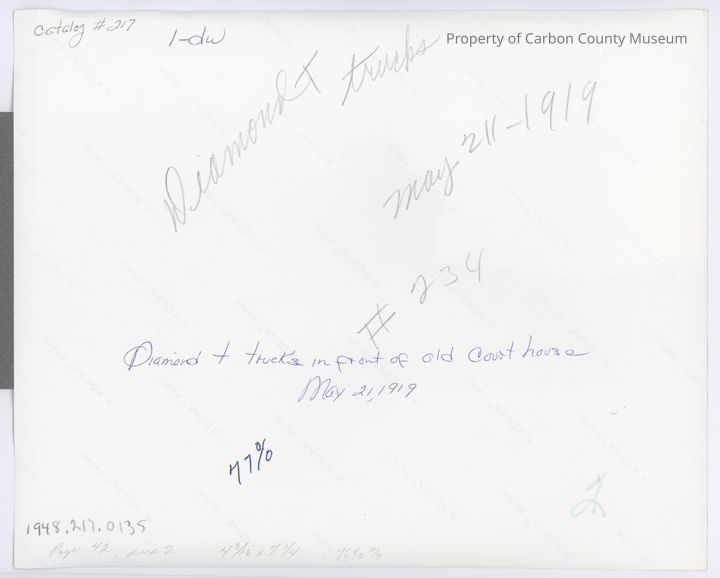 Catalog # 217
1-dw
Property of Carbon County Museum
Diamond T trucks
May 21-1919
# 234
Diamond T trucks in front of old Court house
May 21, 1919
77%
2
1948.217.0135
Page 42, six 2 4 3/16 x 7 1/4
KODAK PAPER